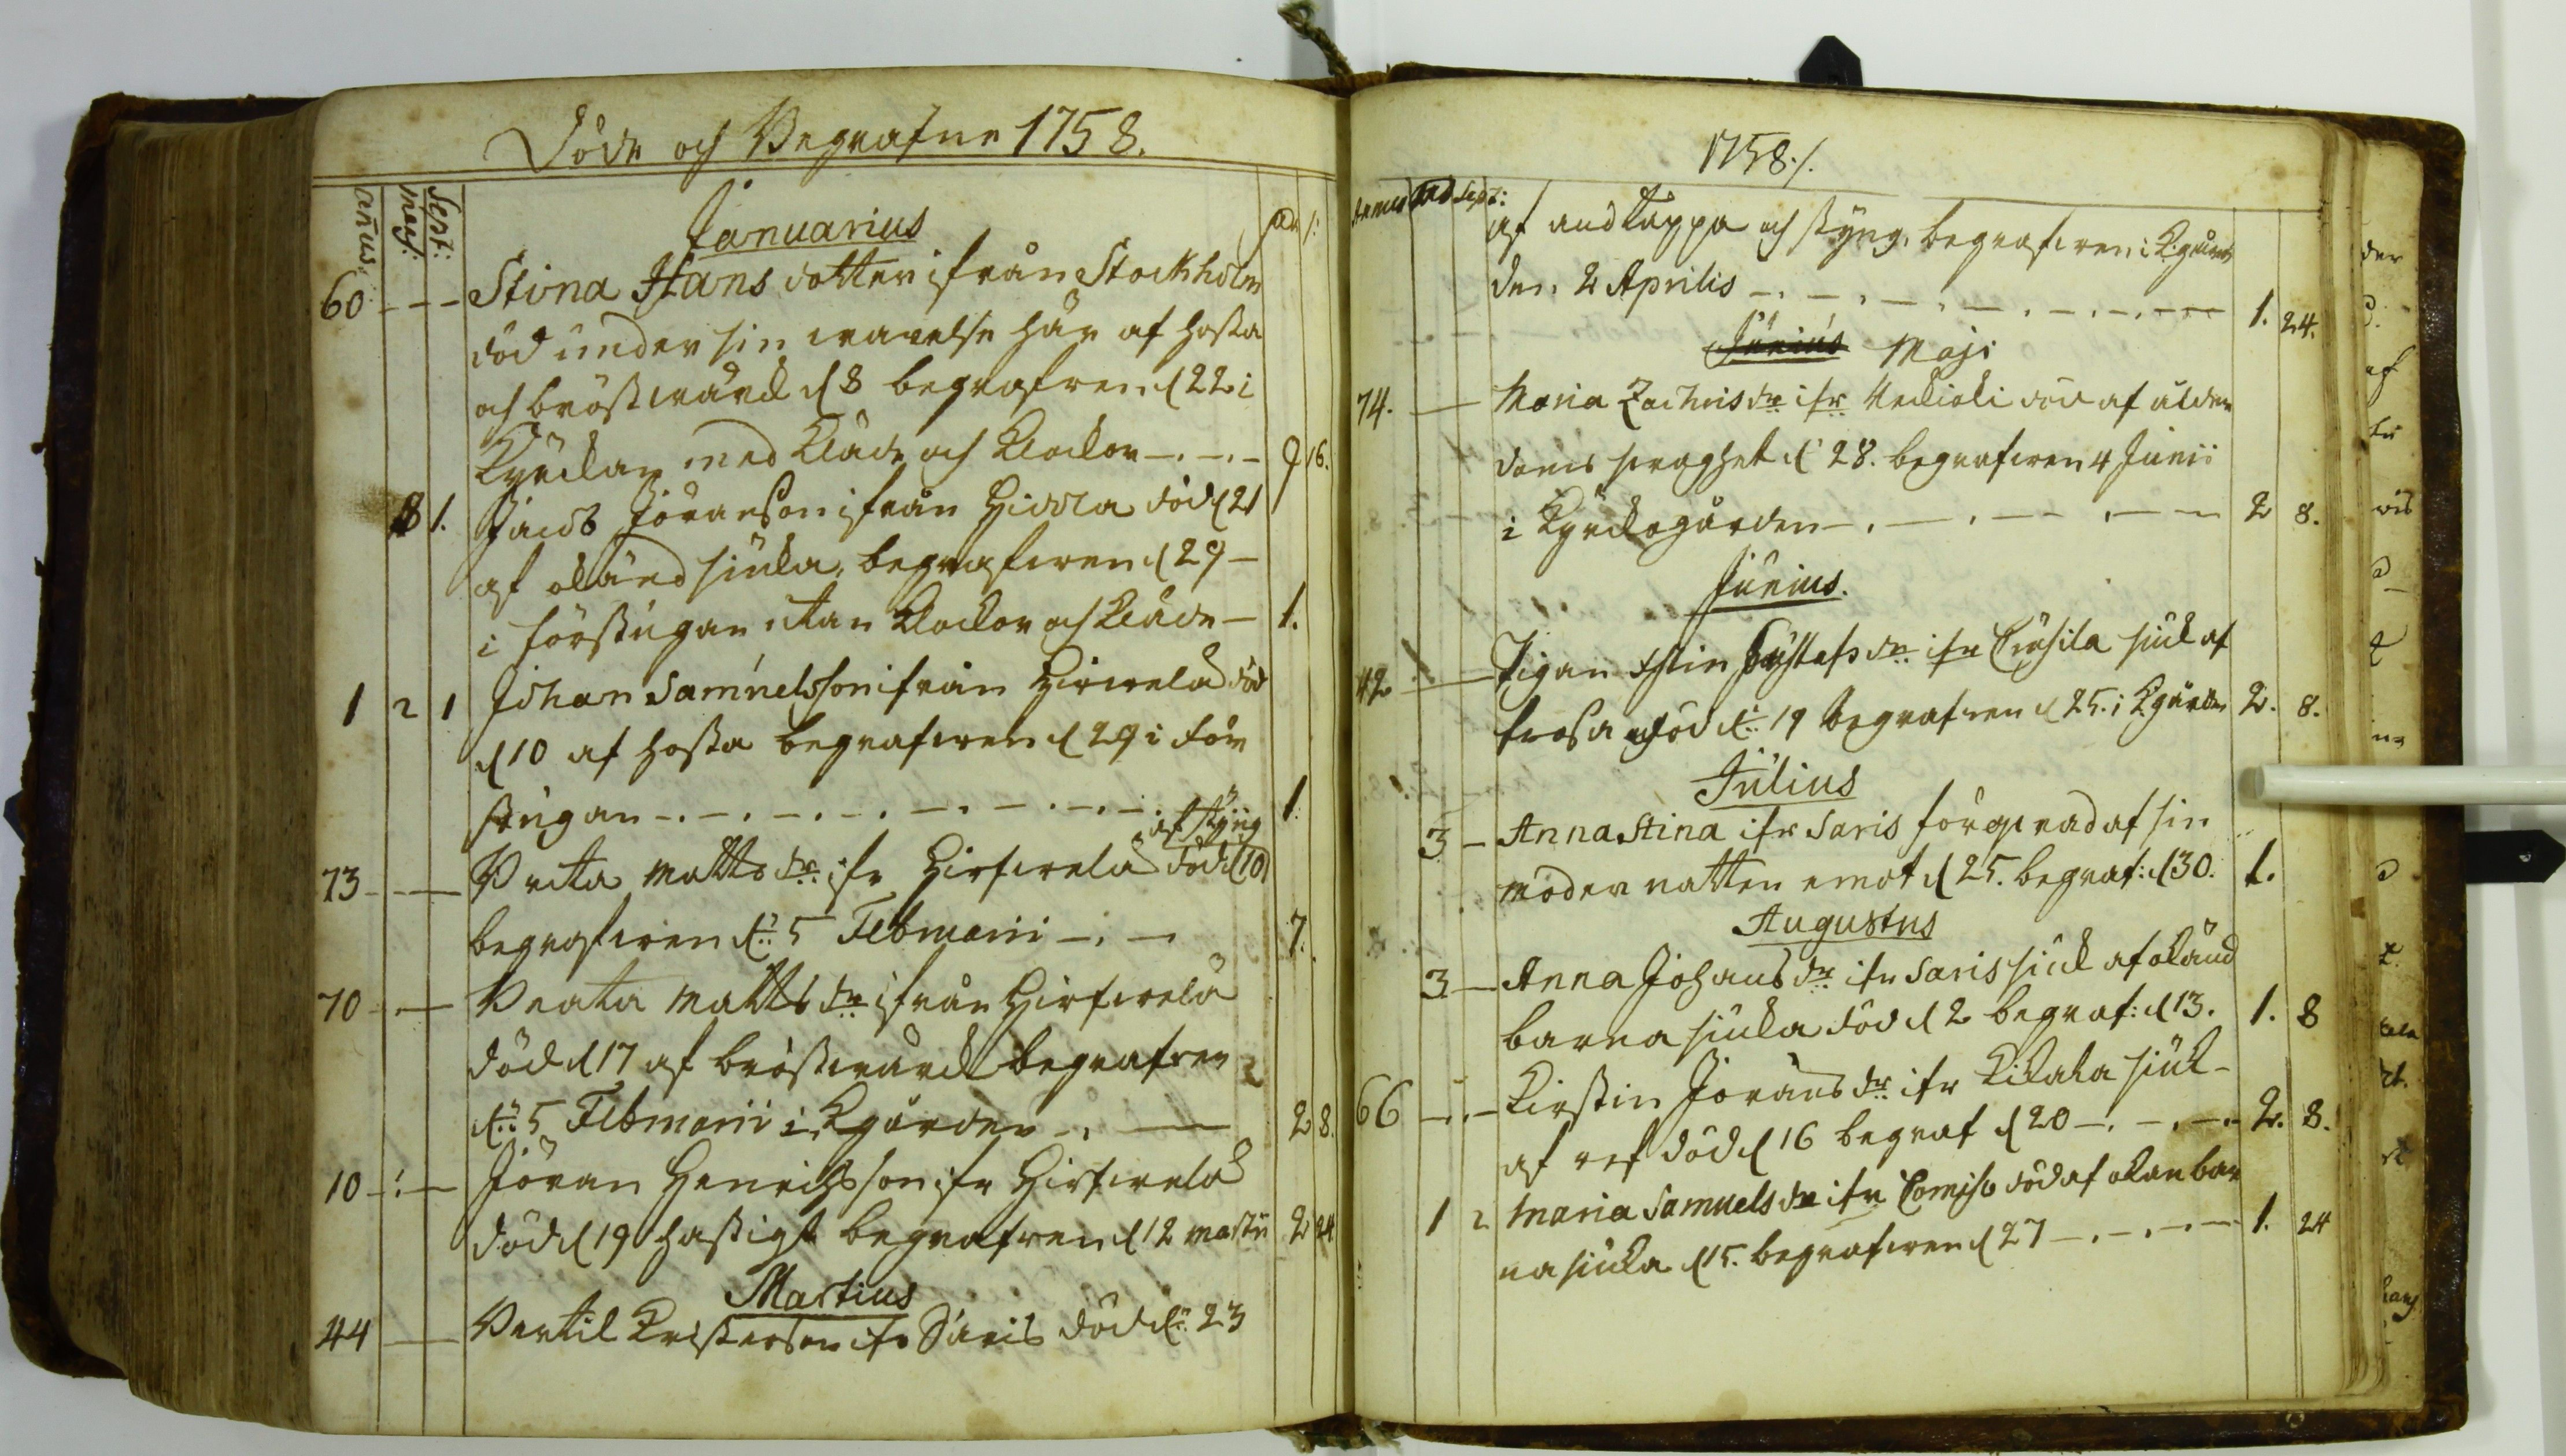 Döde och Begrafne 1758.
anus. maas: Sept:
Januarius
60 - - - Stina Hans dotter ifrån Stockholm
död under sin warelse här af hosta
och bröstwärck d 8 begrafwen d 22 i
Kyrckan med Kläde och Klockor -.-.- 9 16.
8 1. Jacob Jöranson ifrån död d 21
af okänd siuka, begrafwen d 29 -
i förstugan utan Klockor och Kläde - 1.
1 2 1 Johan Samuelsson ifrån Hirwelä död
d 10 af hosta begrafwen d 29 i för
stugan -.-.-.-.-.-.-.- 1.
af styng
73 - - - Brita Matts dr ifr Hirfwelä död d 10
begrafwen d: 5 Februarii -.- 7.
70 - - Beata Matts dr ifrån Hirfwelä
död d 17 af bröstwärck begrafwen
d: 5 Februarii i Kgården -.- 2 8.
10 -:- Jöran Henrichsson ifr Hirfwelä
död d 19 hastigt begrafwen d 12 Martii 2 24
Martius
44 - Bertil Kristerson ifr Saris död d: 23
1758./.
Annus Sept:
af andtäppa och styng, begrafwen i Kgården
den 2 Aprilis -.-.-.-.-.-.- 1. 24.
Junius Maji
74. - Maria Zachris dr ifr död af ålder
doms swaghet d 28. begrafwen 4 Junii
i Kyrckogården -.-.-.- 2 8.
Junius.
42 - Pigan Gustafs dr ifr siuk af
frossa död d: 19 begrafwen d 25. i Kgården 2. 8.
Julius
3 - Anna Stina ifr Saris förqwafd af sin
moder natten emot d 25. begraf: d 30. 1.
Augustus
3 - Anna Johans dr ifr Saris siuk af okänd
barna siuka död d 2 begraf: d 13. 1. 8
66 -.- Kirstin Jörans dr ifr siuk -
af ref död d 16 begraf d 20 -.-.- 2. 8.
1 2 Maria Samuels dr ifr död af okän bar
na siuka d 15. begrafwen d 27 -.-.- 1. 24